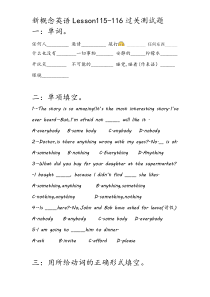 新概念英语 Lesson115-116 过关测试题
一：单词。
任何人______ 邀请______ 敲打______
什么也没有______ 一切事物______ 安静的______ 
开玩笑______ 不可能的______ 睡觉,睡着(作表语)______
眼镜______
二：单项填空。
1-The story is so amazing!It's the most interesting story I've
ever heard-But,I'm afraid not ____ will like it .
A-everybody B-some body C-anybody D-nobody
2-Doctor,is there anything wrong with my eyes?-No.__ is ok
A-something B-nothing C-Everything D-Anything
3-What did you buy for your daughter at the supermarket?
-I bought ____ because I didn't find ___ she likes
A-something,anything B-anything,something
2-nothing,anything D-something,nothing
4-Is ____here?-No,John and Bob have asked for leave(请假)
A-anybody B-somebody C-everybody D-nobody
5-I am going to ____him to dinner
A-ask B-invite C-afford D-please
三：用所给动词的正确形式填空。